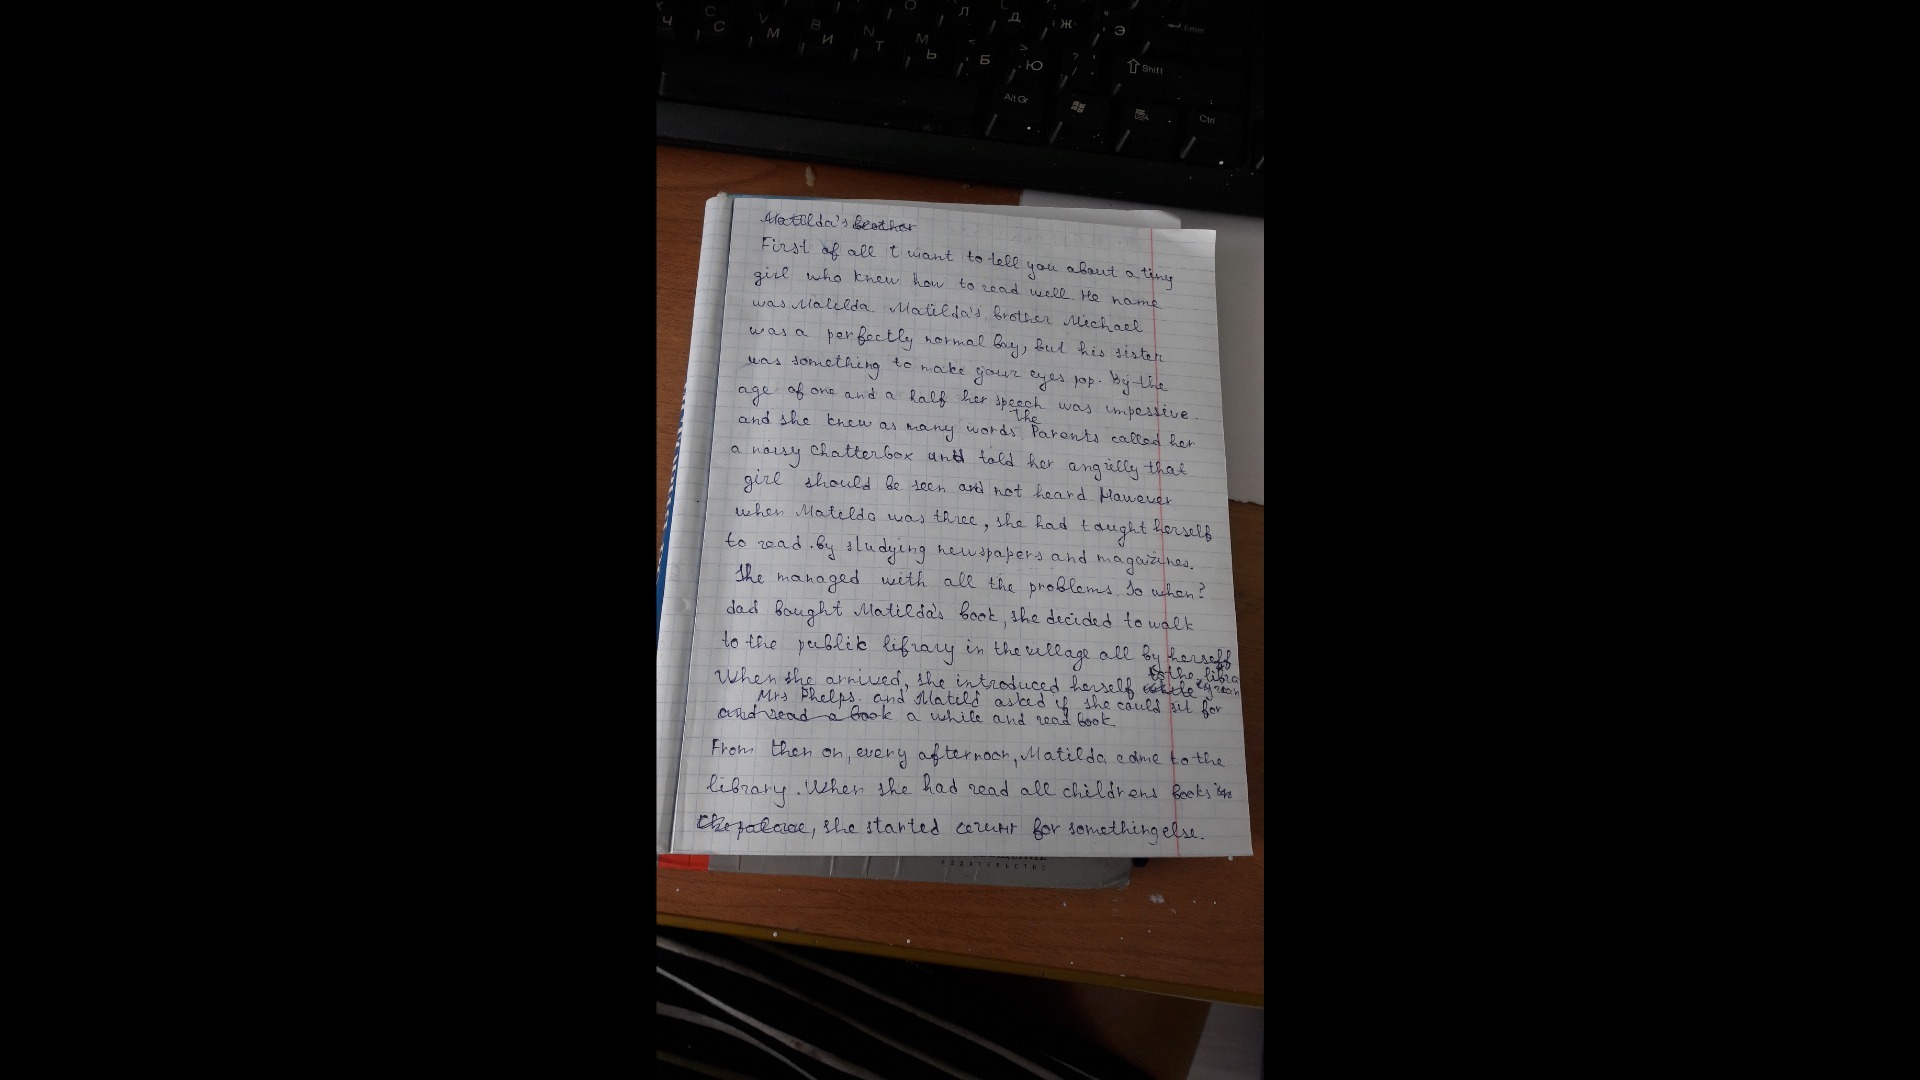 Ч C С V М B И N Т M Ь < Б > Ю Л Д Ж Э Enter
? / Shift
Alt Gr Ctrl
Matilda's brother
First of all I want to tell you about a tiny
girl who knew how to read well. He name
was Matilda. Matilda's brother Michael
was a perfectly normal boy, but his sister
was something to make your eyes pop. By the
age of one and a half her speech was impessive.
and she knew as many words. the Parents called her
a noisy chatterbox and told her angrilly that
girl should be seen and not heard However
when Matilda was three, she had taught herself
to read by studying newspapers and magazines.
She managed with all the problems. So when?
dad bought Matilda's book, she decided to walk
to the publik library in the village all by herself
When she arrived, she introduced herself to the libra
Mrs Phelps. and Matild asked if she could sit for
and read a book a while and read book
From then on, every afternoon, Matilda came to the
library. When she had read all childrens books in
the palace, she started for something else.
ИЗДАТЕЛЬСТВО